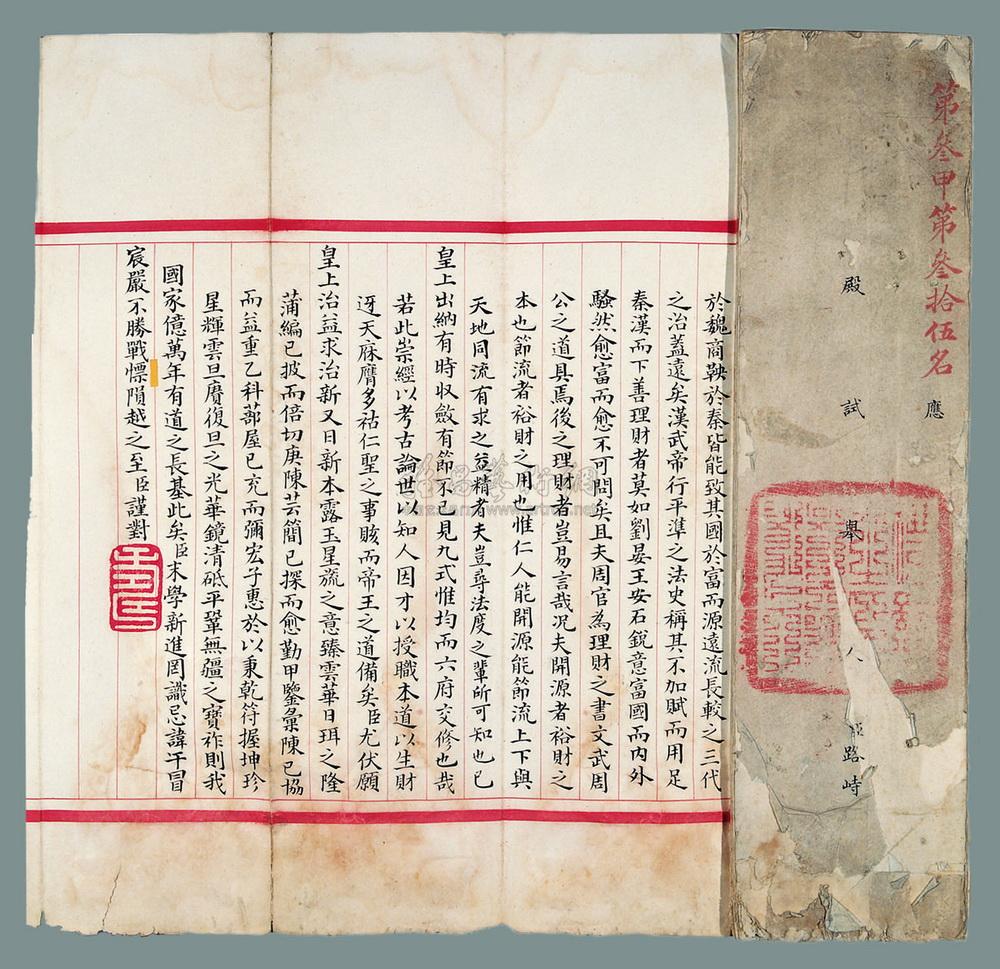 第叁甲第叁拾伍名
應
殿試舉人臣路峙
於魏商鞅於秦皆能致其國於富而源遠流長較之三代
之治蓋遠矣漢武帝行平準之法史稱其不加賦而用足
秦漢而下善理財者莫如劉晏王安石銳意富國而內外
騷然愈富而愈不可問矣且夫周官為理財之書文武周
公之道具焉後之理財者豈易言哉況夫開源者裕財之
本也節流者裕財之用也惟仁人能開源能節流上下與
天地同流有求之益精者夫豈尋法度之輩所可知也已
皇上出納有時收斂有節不已見九式惟均而六府交修也哉
若此崇經以考古論世以知人因才以授職本道以生財
迓天庥膺多祜仁聖之事賅而帝王之道備矣臣尤伏願
皇上治益求治新又日新本露玉星旒之意臻雲華日珥之隆
蒲編已披而倍切庚陳芸簡已探而愈勤甲鑒彙陳已協
而益重乙科蔀屋已充而彌宏子惠於以秉乾符握坤珍
星輝雲旦賡復旦之光華鏡清砥平鞏無疆之寶祚則我
國家億萬年有道之長基此矣臣末學新進罔識忌諱干冒
宸嚴不勝戰慄隕越之至臣謹對